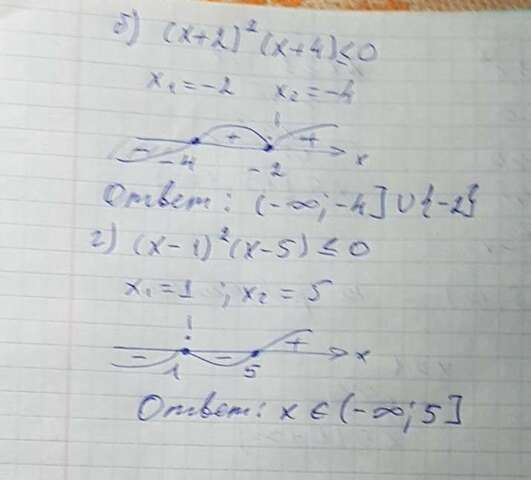 б) (x+2)²(x+4)≤0
x₁=-2 x₂=-4
- + ! +
-4 -2 x
Ответ: (-∞;-4]∪{-2}
г) (x-1)²(x-5)≤0
x₁=1 ; x₂=5
- ! - +
1 5 x
Ответ: x∈(-∞;5]